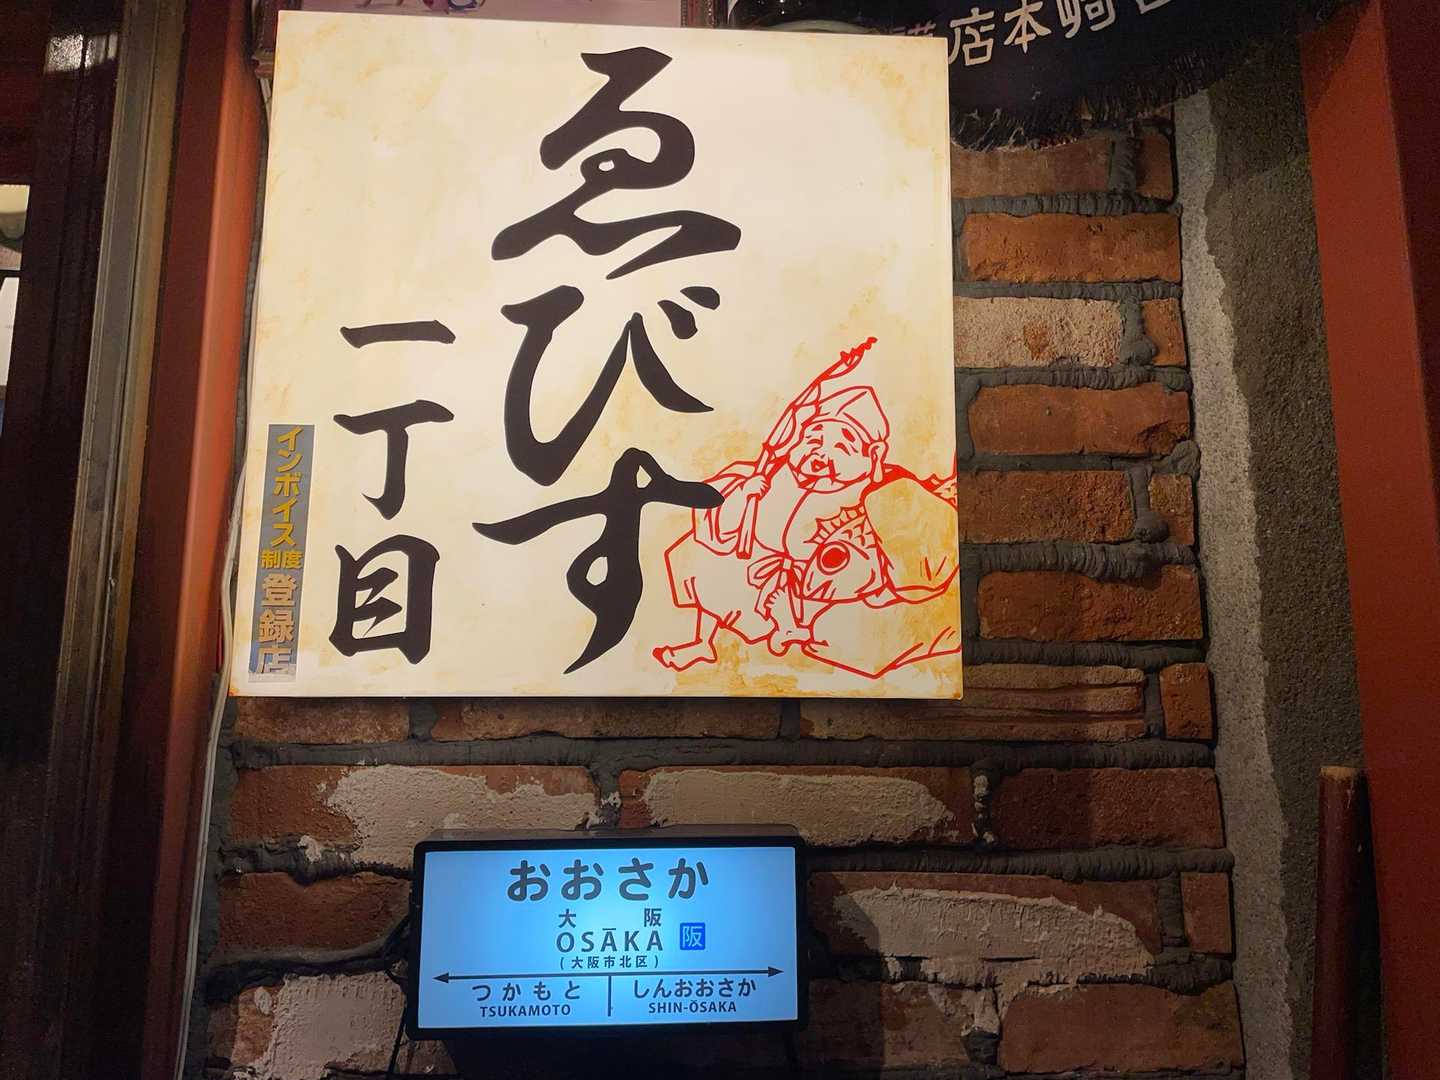 崎本店
ゑびす
一丁目
インボイス制度登録店
おおさか
大阪
ŌSĀKA 阪
(大阪市北区)
つかもと しんおおさか
TSUKAMOTO SHIN-ŌSAKA